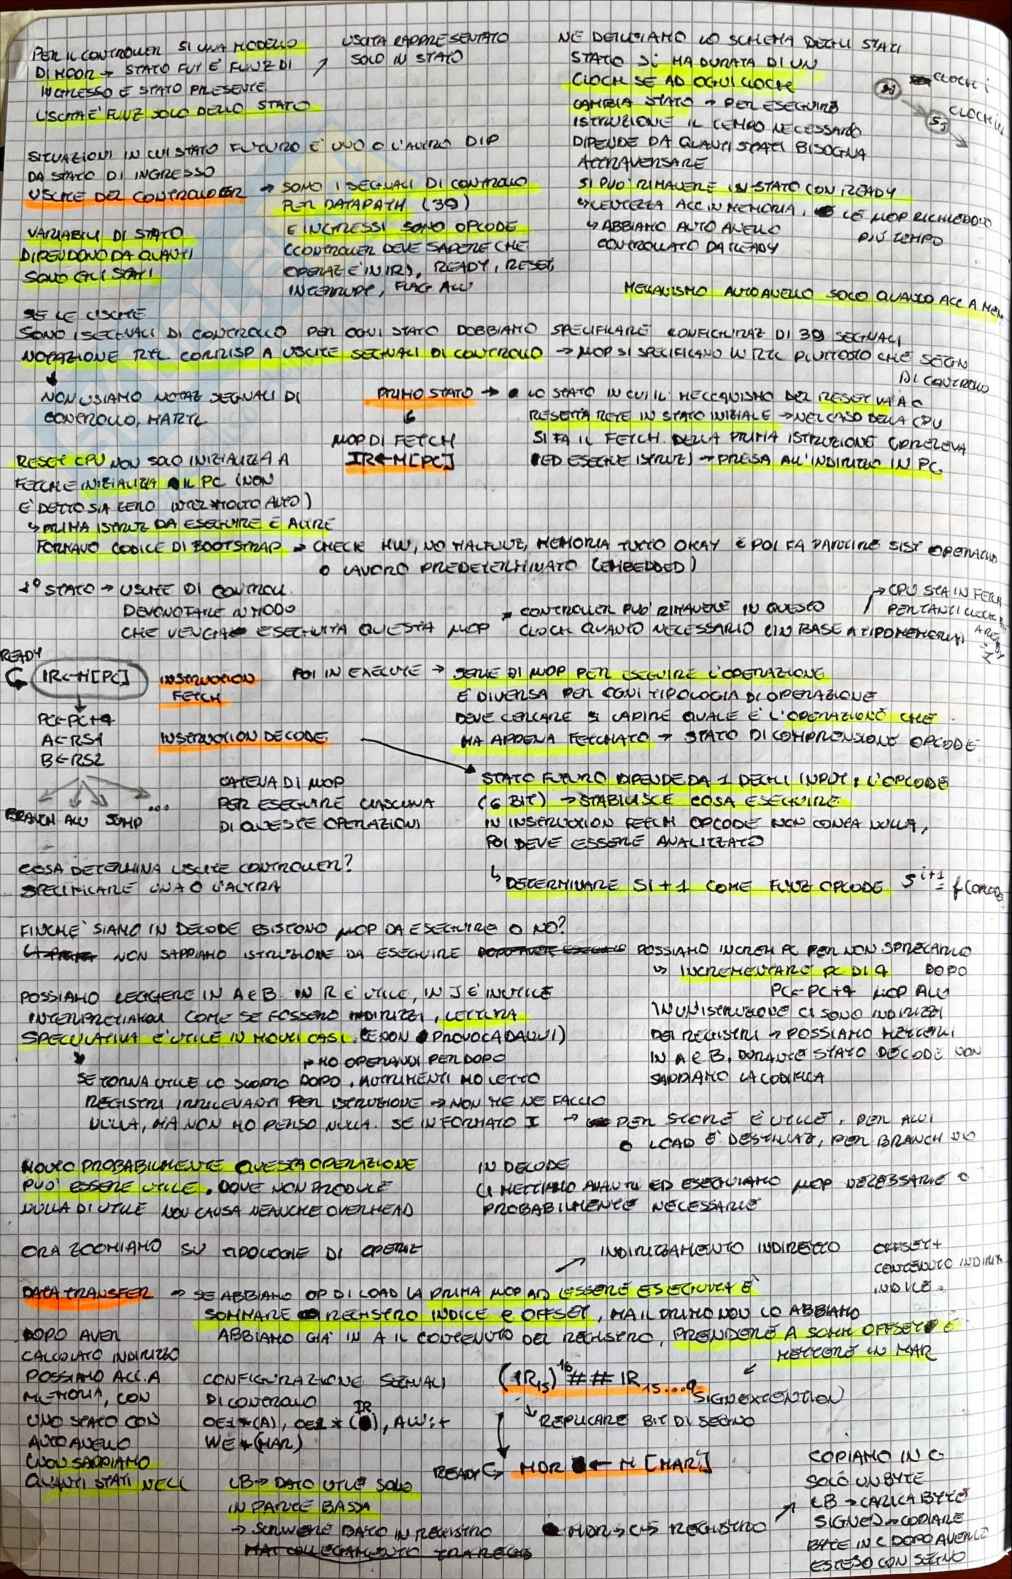 PER IL CONTROLLER SI USA MODELLO
DI MOOR → STATO FUT È FUNZ DI
INGRESSO E STATO PRESENTE
USCITA È FUNZ SOLO DELLO STATO
USCITA RAPPRESENTATO
SOLO IN STATO
SITUAZIONI IN CUI STATO FUTURO È UNO O L'ALTRO DIP
DA STATO DI INGRESSO
USCITE DEL CONTROLLER → SONO I SEGNALI DI CONTROLLO
PER DATAPATH (39)
VARIABILI DI STATO
DIPENDONO DA QUANTI
SONO GLI STATI
E INGRESSI SONO OPCODE
(CONTROLLER DEVE SAPERE CHE
OPERAZ È IN IR), READY, RESET,
INTERRUPT, FLAG ALU
NE DEFINIAMO LO SCHEMA DEGLI STATI
STATO Si HA DURATA DI UN
CLOCK SE AD OGNI CLOCK
CAMBIA STATO → PER ESEGUIRE
ISTRUZIONE IL TEMPO NECESSARIO
DIPENDE DA QUANTI STATI BISOGNA
ATTRAVERSARE
CLOCK i
CLOCK
SI PUÒ RIMANERE IN STATO CON READY
↳ LENTEZZA ACC IN MEMORIA, LE MOP RICHIEDONO
PIÙ TEMPO
↳ ABBIAMO AUTO ANELLO
CONTROLLATO DA READY
MECCANISMO AUTOANELLO SOLO QUANDO ACC A MEM
SE LE USCITE
SONO I SEGNALI DI CONTROLLO PER OGNI STATO DOBBIAMO SPECIFICARE CONFIGURAZ DI 39 SEGNALI
NOTAZIONE RTL CORRISP A USCITE SEGNALI DI CONTROLLO → MOP SI SPECIFICANO IN RTL PIUTTOSTO CHE SEGN
DI CONTROLLO
NON USIAMO NOTAZ SEGNALI DI
CONTROLLO, MA RTL
PRIMO STATO → LO STATO IN CUI IL MECCANISMO DEL RESET
RESETTA RETE IN STATO INIZIALE → NEL CASO DELLA CPU
SI FA IL FETCH DELLA PRIMA ISTRUZIONE (PRELEVA
ED ESEGUE ISTRUZ) → PRESA ALL'INDIRIZZO IN PC
MOP DI FETCH
IR←M[PC]
RESET CPU NON SOLO INIZIALIZZA A
FETCH E INIZIALIZZA IL PC (NON
È DETTO SIA ZERO, MOLTO ALTO)
↳ PRIMA ISTRUZ DA ESEGUIRE E ALTRE
FORMANO CODICE DI BOOTSTRAP → CHECK HW, NO MALFUNZ, MEMORIA TUTTO OKAY E POI FA PARTIRE SIST OPERATIVO
O LAVORO PREDETERMINATO (EMBEDDED)
1° STATO → USCITE DI CONTROLL
DEVONO FARE IN MODO
CHE VENGA ESEGUITA QUESTA MOP
CONTROLLER PUÒ RIMANERE IN QUESTO
CLOCK QUANTO NECESSARIO (IN BASE A TIPO MEMORIA)
CPU STA IN FETCH
PER TANTI CLOCK
READY
IR←M[PC]
INSTRUCTION
FETCH
PC←PC+4
A←RS1
B←RS2
INSTRUCTION DECODE
BRANCH ALU JUMP ...
POI IN EXECUTE → SERIE DI MOP PER ESEGUIRE L'OPERAZIONE
È DIVERSA PER OGNI TIPOLOGIA DI OPERAZIONE
DEVE CERCARE DI CAPIRE QUALE È L'OPERAZIONE CHE
HA APPENA FETCHATO → STATO DI COMPRENSIONE OPCODE
CATENA DI MOP
PER ESEGUIRE CIASCUNA
DI QUESTE OPERAZIONI
STATO FUTURO DIPENDE DA 1 DEGLI INPUT: L'OPCODE
(6 BIT) → STABILISCE COSA ESEGUIRE
IN INSTRUCTION FETCH OPCODE NON CONTA NULLA,
POI DEVE ESSERE ANALIZZATO
↳ DETERMINARE SI+1 COME FUNZ OPCODE
COSA DETERMINA USCITE CONTROLLER?
SPECIFICARE UNA O L'ALTRA
FINCHÈ SIAMO IN DECODE ESISTONO MOP DA ESEGUIRE O NO?
NON SAPPIAMO ISTRUZIONE DA ESEGUIRE POSSIAMO INCREM PC PER NON SPRECARLO
↳ INCREMENTARE PC DI 4 DOPO
PC←PC+4 MOP ALU
POSSIAMO LEGGERE IN A E B. IN R È UTILE, IN J È INUTILE
INTERPRETIAMOLI COME SE FOSSERO INDIRIZZI, LETTURA
SPECULATIVA È UTILE IN MOLTI CASI (E NON PROVOCA DANNI)
↳ HO OPERANDI PER DOPO
SE TORNA UTILE LO SCOPRO DOPO, ALTRIMENTI HO LETTO
REGISTRI IRRILEVANTI PER ISTRUZIONE → NON ME NE FACCIO
NULLA, MA NON HO PERSO NULLA. SE IN FORMATO I → PER STORE È UTILE, PER ALU
O LOAD È DESTINAZ, PER BRANCH NO
IN UN'ISTRUZIONE CI SONO INDIRIZZI
DEI REGISTRI → POSSIAMO METTERLI
IN A E B. DURANTE STATO DECODE NON
SAPPIAMO LA CODIFICA
MOLTO PROBABILMENTE QUESTA OPERAZIONE
PUÒ ESSERE UTILE. DOVE NON PRODUCE
NULLA DI UTILE NON CAUSA NEANCHE OVERHEAD
IN DECODE
CI METTIAMO AVANTI ED ESEGUIAMO MOP NECESSARIE O
PROBABILMENTE NECESSARIE
ORA ZOOMIAMO SU TIPOLOGIE DI OPERAZ
INDIRIZZAMENTO INDIRETTO
OFFSET+
CONTENUTO INDIRIZZ
INDICE.
DATA TRANSFER → SE ABBIAMO OP DI LOAD LA PRIMA MOP AD ESSERE ESEGUITA È
SOMMARE REGISTRO INDICE E OFFSET, MA IL PRIMO NON LO ABBIAMO
ABBIAMO GIÀ IN A IL CONTENUTO DEL REGISTRO, PRENDERE A SOMM OFFSET E
METTERE IN MAR
DOPO AVER
CALCOLATO INDIRIZZO
POSSIAMO ACC. A
MEMORIA, CON
UNO STATO CON
AUTOANELLO
(NON SAPPIAMO
QUANTI STATI NECE
CONFIGURAZIONE SEGNALI
DI CONTROLLO
IR
WE*(MAR)
(IR15)^16 ## IR15...0
SIGNEXTENTION
↳ REPLICARE BIT DI SEGNO
READY MDR ← M[MAR]
LB → DATO UTILE SOLO
IN PARTE BASSA
→ SCRIVERE DATO IN REGISTRO
MDR → C → REGISTRO
COPIAMO IN C
SOLO UN BYTE
LB → CARICA BYTE
SIGNED → COPIARE
BYTE IN C DOPO AVERLO
ESTESO CON SEGNO